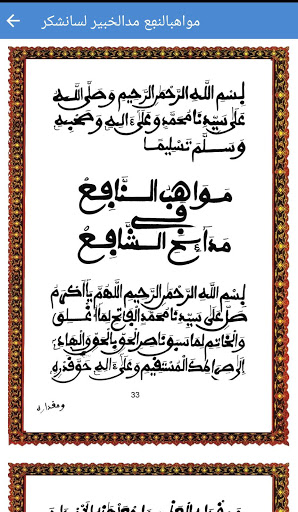 مواهبالنبع مدالخبير لسانشكر
بِسْمِ اللَّهِ الرَّحْمَٰنِ الرَّحِيمِ وَصَلَّى اللَّهُ
عَلَى سَيِّدِنَا مُحَمَّدٍ وَعَلَى آلِهِ وَصَحْبِهِ
وَسَلَّمَ تَسْلِيمًا
مَوَاهِبُ النَّافِعْ
فِي
مَدَائِحِ الشَّافِعْ
بِسْمِ اللَّهِ الرَّحْمَٰنِ الرَّحِيمِ اللَّهُمَّ يَا أَكْرَمَ
صَلِّ عَلَى سَيِّدِنَا مُحَمَّدٍ الْفَاتِحِ لِمَا أُغْلِقَ
وَالْخَاتِمِ لِمَا سَبَقَ نَاصِرِ الْحَقِّ بِالْحَقِّ وَالْهَادِي
إِلَى صِرَاطِكَ الْمُسْتَقِيمِ وَعَلَى آلِهِ حَقَّ قَدْرِهِ
33
ومقداره